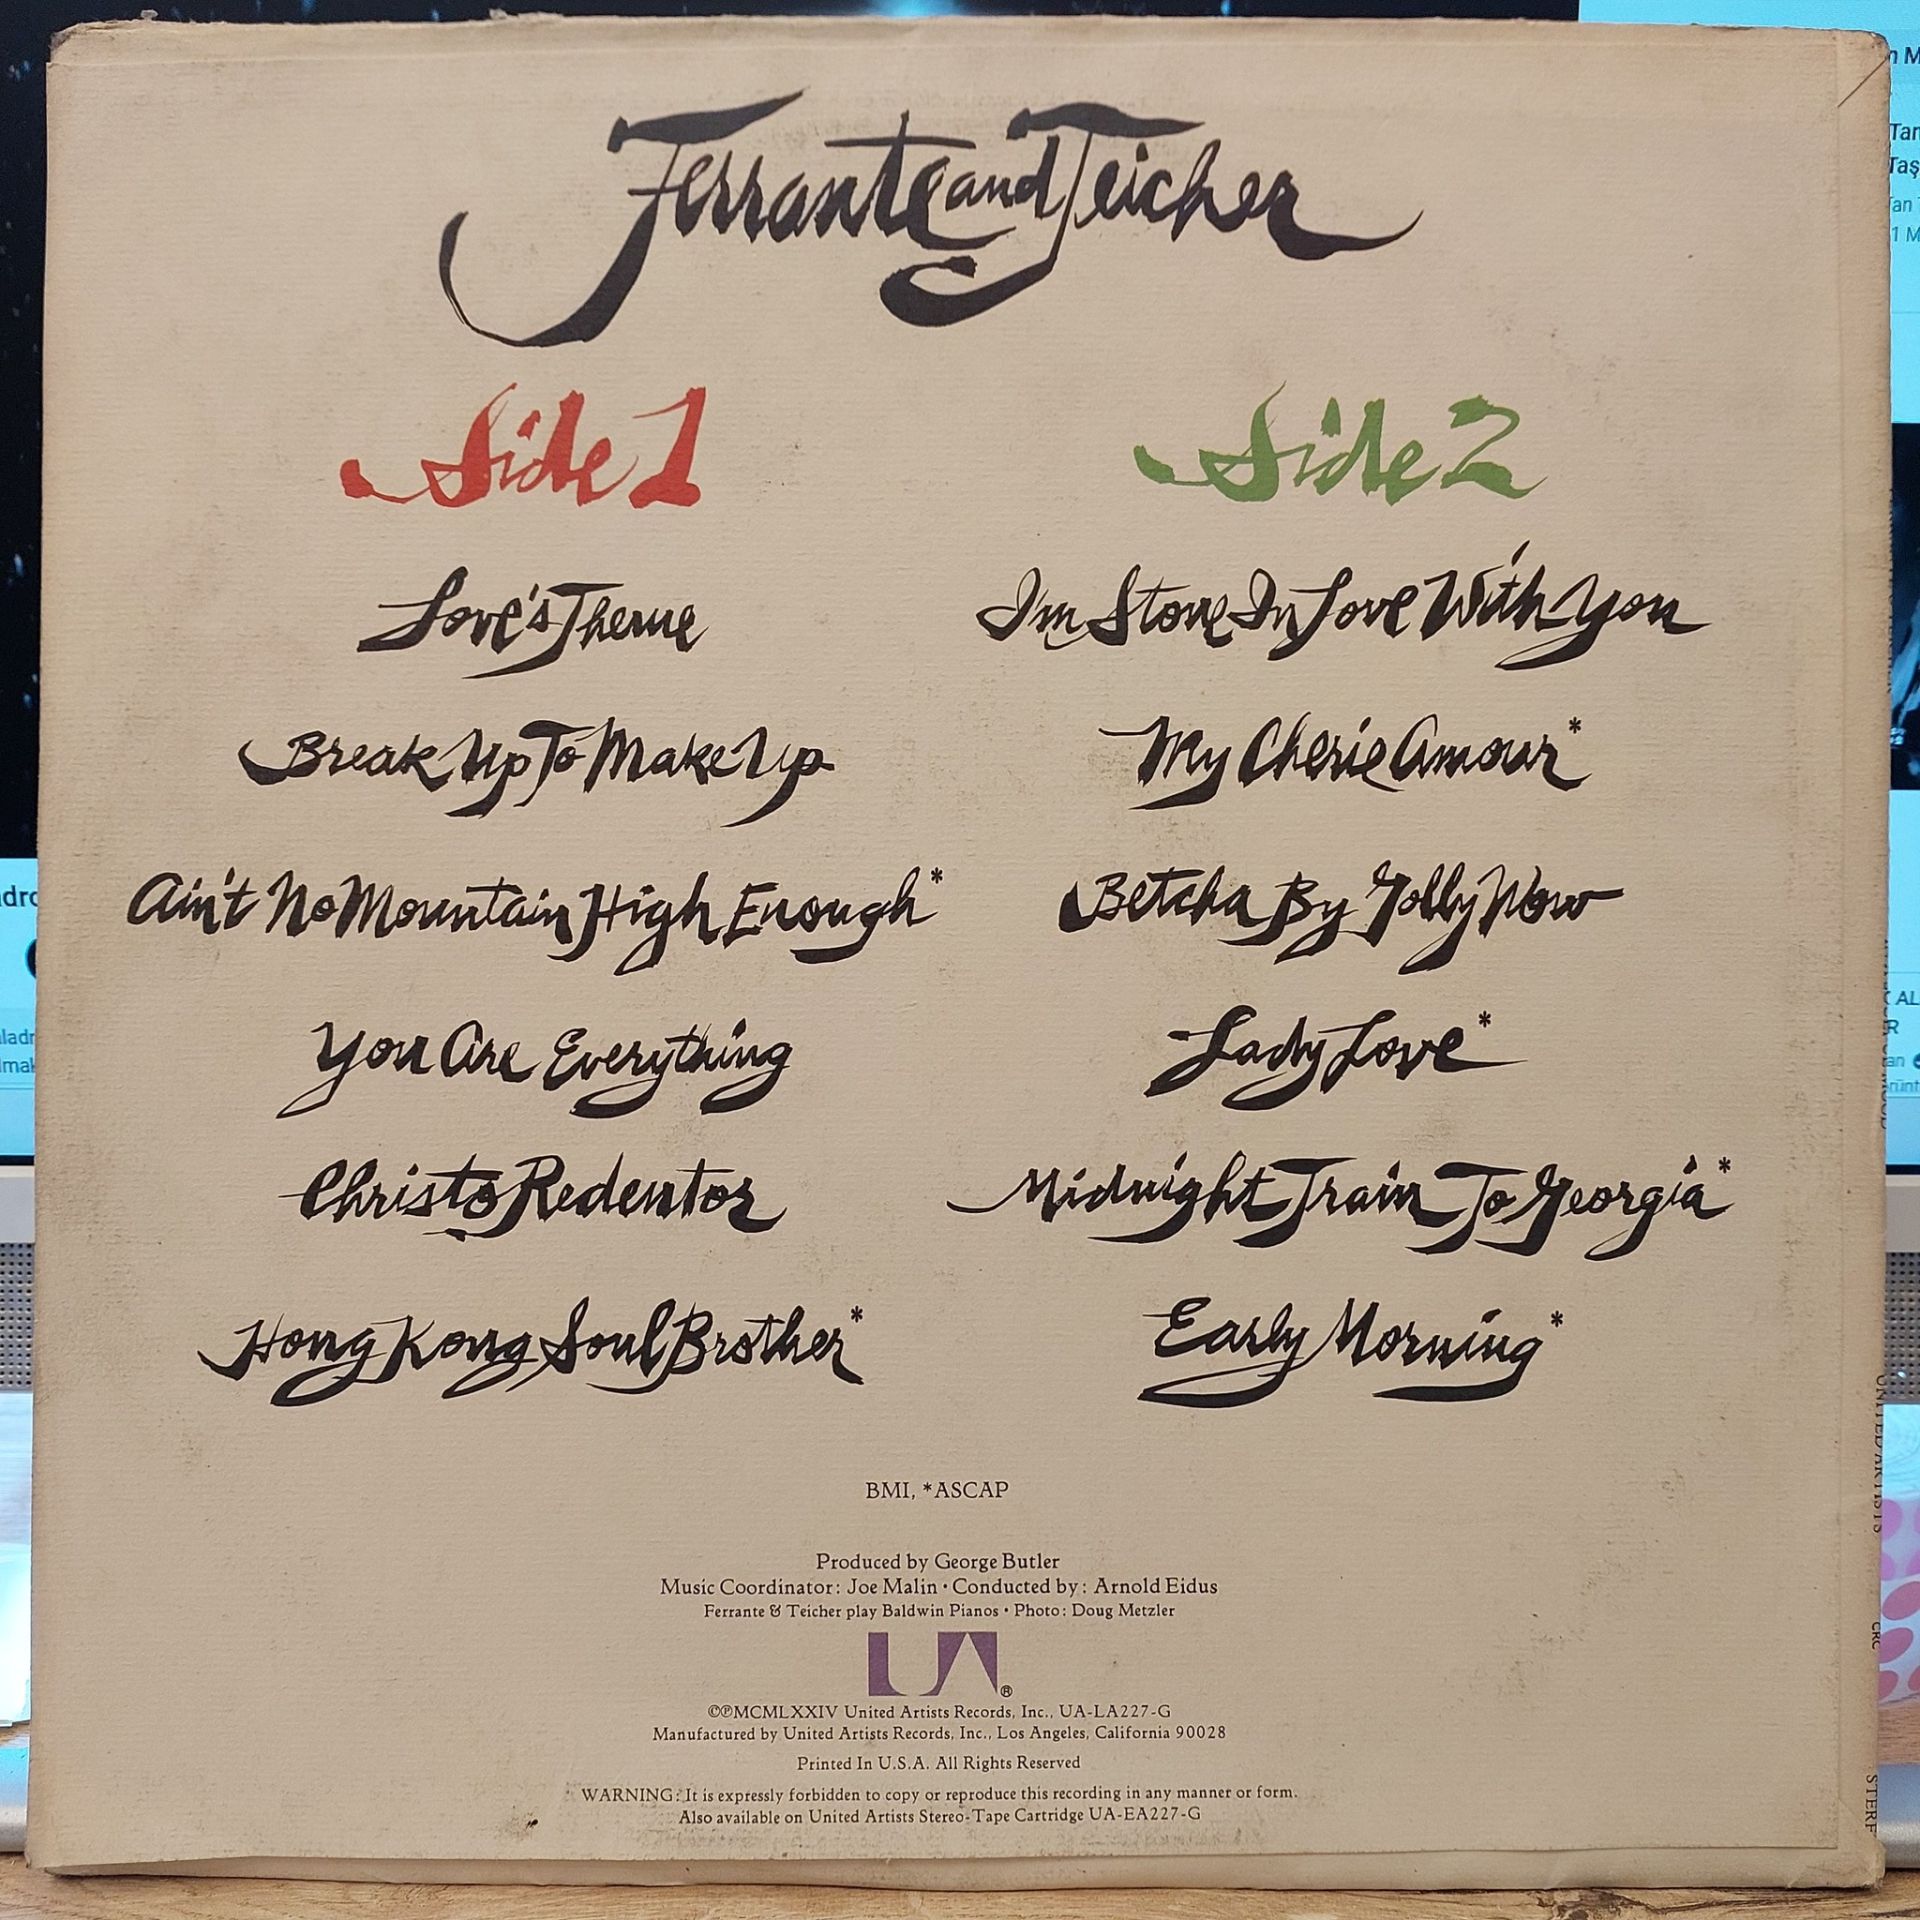 Ferrante and Teicher
Side 1
Love's Theme
Break Up To Make Up
Ain't No Mountain High Enough*
You Are Everything
Christo Redentor
Hong Kong Soul Brother*
Side 2
I'm Stone In Love With You
My Cherie Amour*
Betcha By Golly Wow
Lady Love*
Midnight Train To Georgia*
Early Morning*
BMI, *ASCAP
Produced by George Butler
Music Coordinator: Joe Malin • Conducted by: Arnold Eidus
Ferrante & Teicher play Baldwin Pianos • Photo: Doug Metzler
UA®
©℗MCMLXXIV United Artists Records, Inc., UA-LA227-G
Manufactured by United Artists Records, Inc., Los Angeles, California 90028
Printed In U.S.A. All Rights Reserved
WARNING: It is expressly forbidden to copy or reproduce this recording in any manner or form.
Also available on United Artists Stereo-Tape Cartridge UA-EA227-G
UNITED ARTISTS